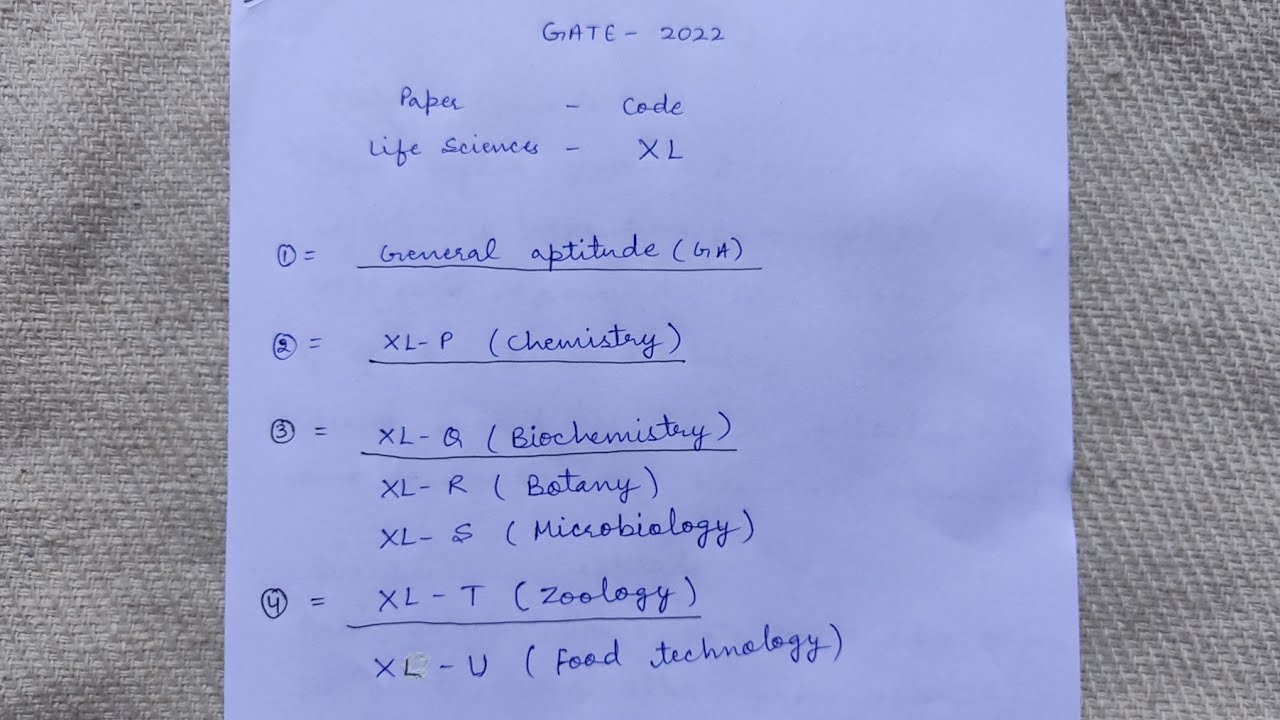 GATE - 2022
Paper - Code
Life Sciences - XL
① = General aptitude (GA)
② = XL-P (Chemistry)
③ = XL-Q (Biochemistry)
XL-R (Botany)
XL-S (Microbiology)
④ = XL-T (Zoology)
XL-U (Food technology)